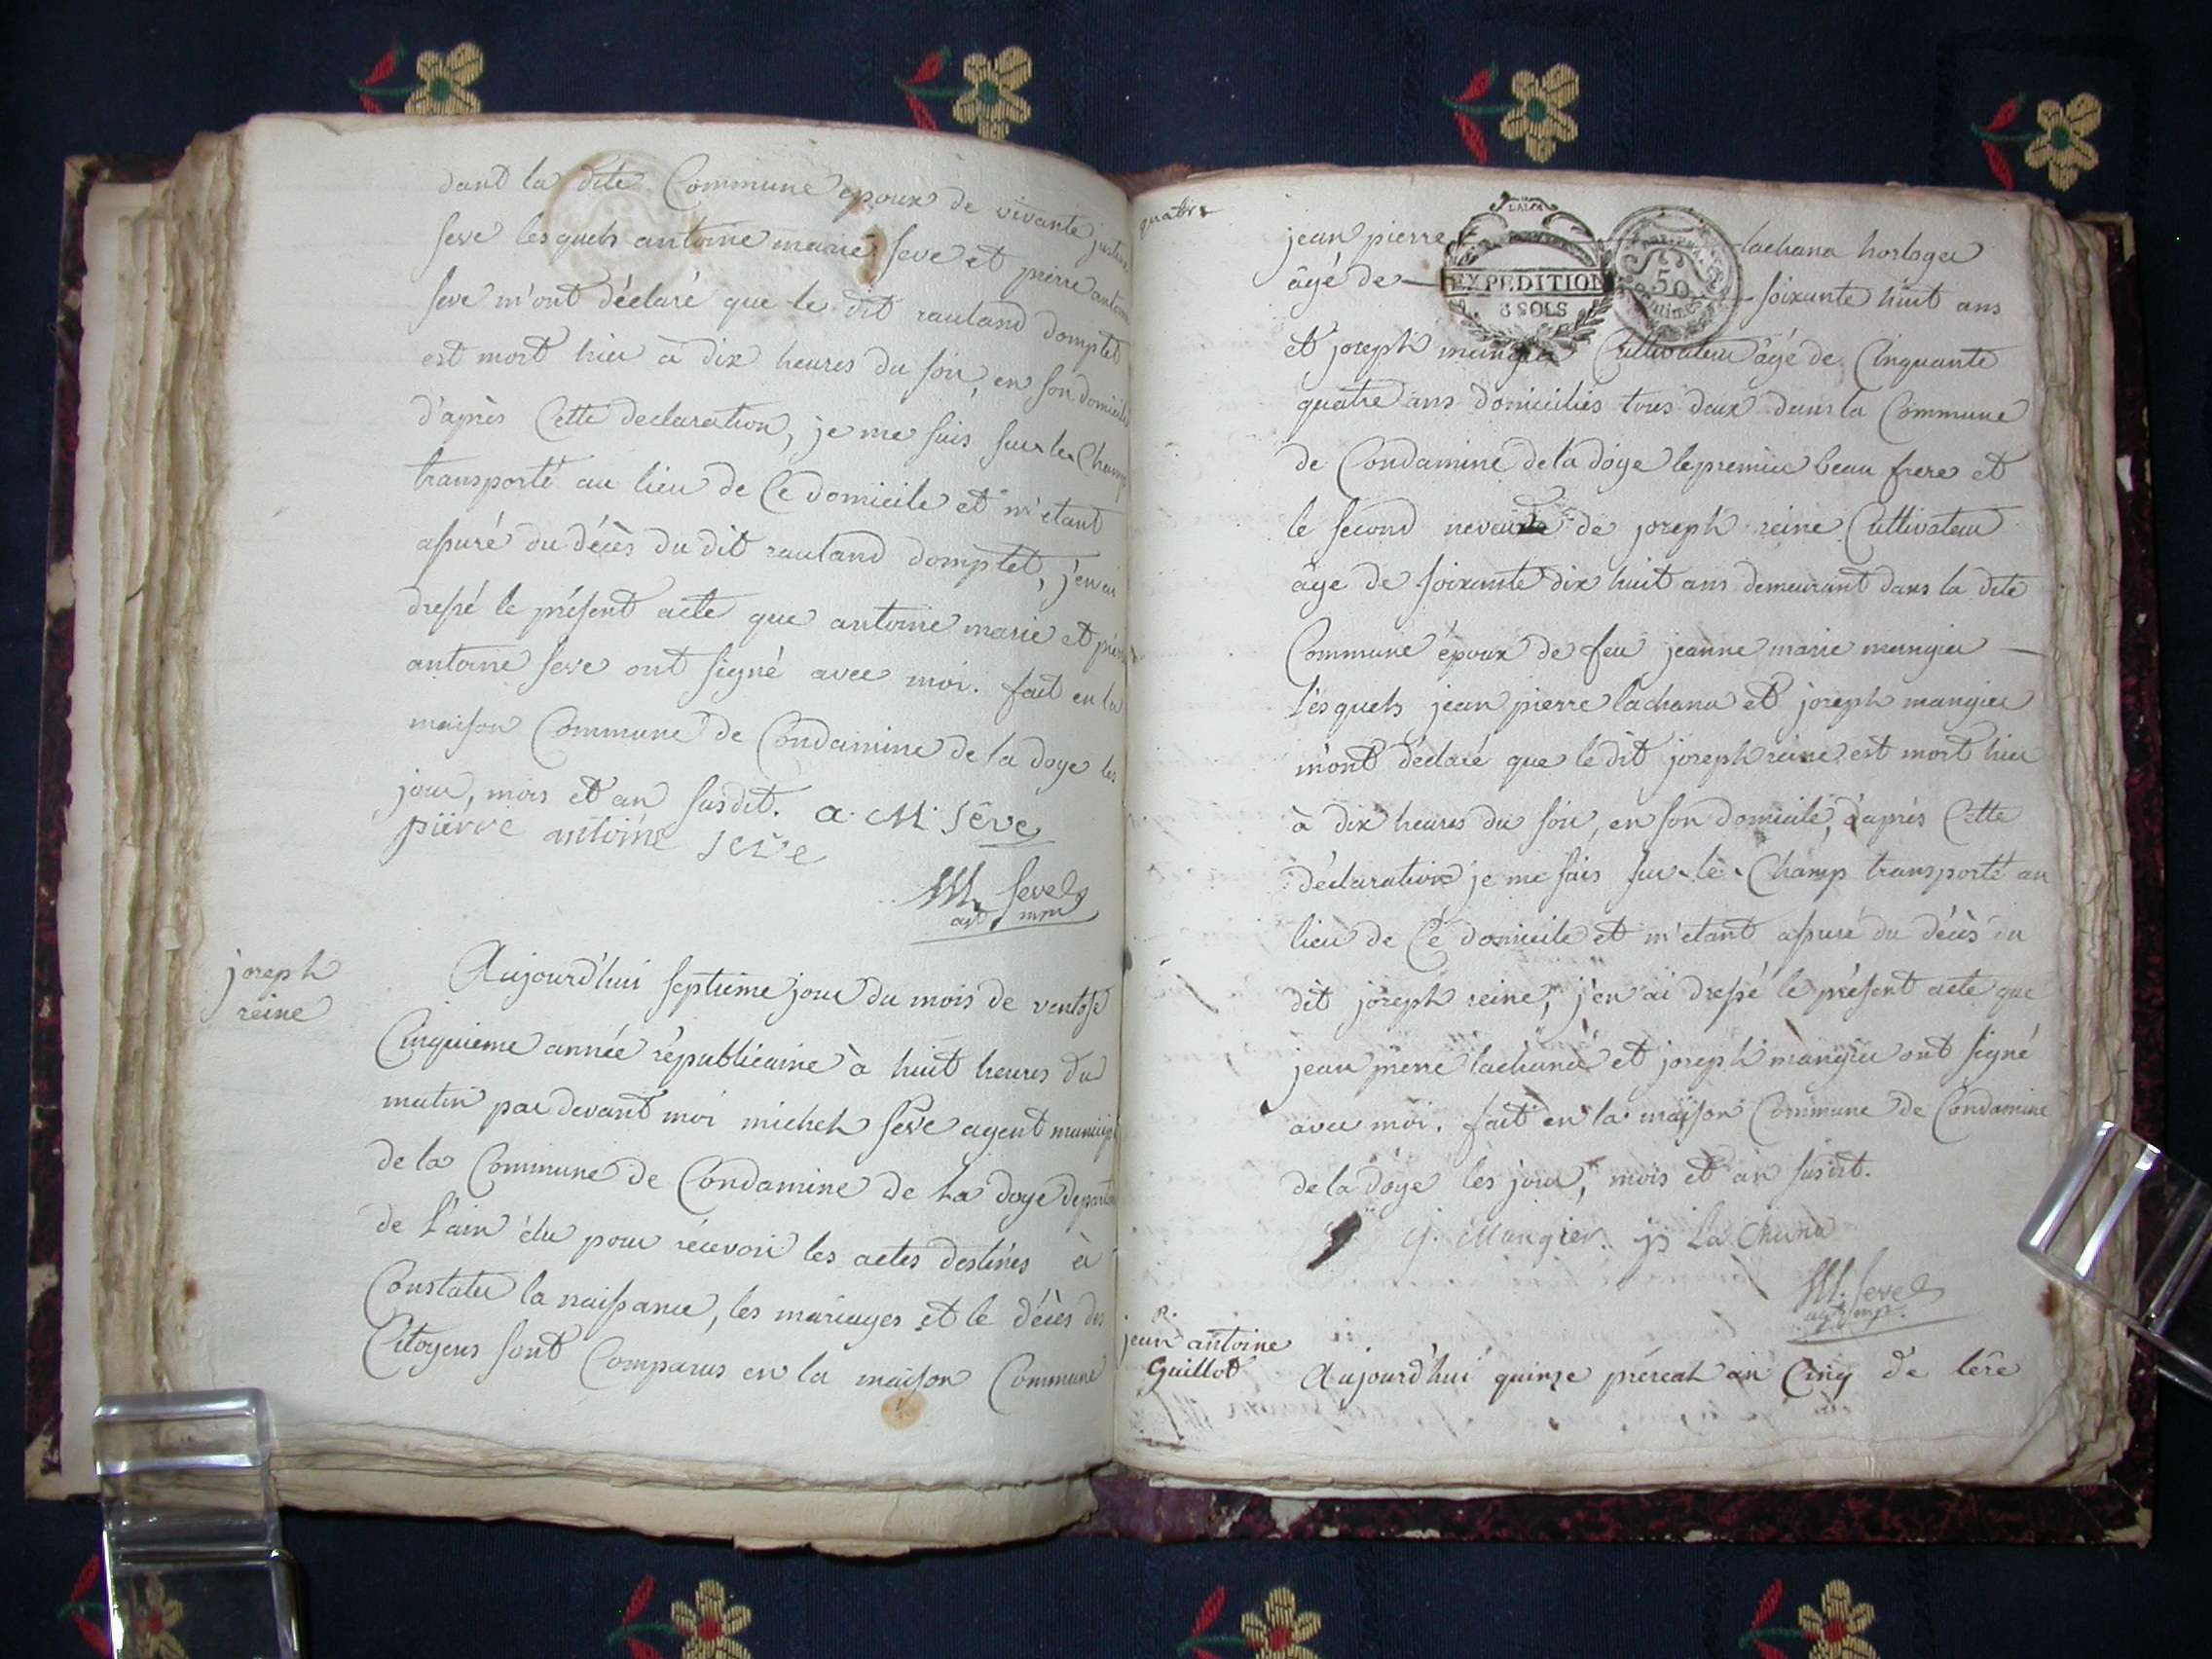 dant la dite Commune epoux de vivante
seve lesquels antoine marie seve et pierre antoine
seve m'ont déclaré que le dit rauland domptet
est mort hier à dix heures du soir, en son domicile
d'après Cette declaration, je me suis sur le Champ
transporté au lieu de Ce domicile et m'etant
assuré du décès du dit rauland domptet, j'en ai
dressé le présent acte que antoine marie et pierre
antoine seve ont signé avec moi. fait en la
maison Commune de Condamine de la doye les
jour, mois et an susdit. a. M. Sêve
pierre antoine seve
M. Seve
agt mpal
joseph
reine
Aujourd'hui septieme jour du mois de ventose
Cinquieme année républicaine à huit heures du
matin par devant moi michel seve agent municip
de la Commune de Condamine de La doye departe
de l'ain élu pour récevoir les actes destinés à
Constater la naissance, les mariages et le décès des
Citoyens sont Comparus en la maison Commune
quatre
jean pierre lachana horloger
LA LOI
EXPEDITION
8 SOLS
50
Centimes
âgé de soixante huit ans
et joseph mangier Cultivateur âgé de Cinquante
quatre ans domiciliés tous deux dans la Commune
de Condamine de la doye le premier beau frere et
le second neveu de joseph reine Cultivateur
âge de soixante dix huit ans demeurant dans la dite
Commune époux de feu jeanne marie mangier
Lesquels jean pierre lachana et joseph mangier
m'ont déclaré que le dit joseph reine est mort hier
à dix heures du soir, en son domicile, d'aprés Cette
déclaration je me suis sur le Champ transporté au
lieu de Ce domicile et m'etant assuré du décès du
dit joseph reine, j'en ai dressé le présent acte que
jean pierre lachana et joseph mangier ont signé
avec moi. fait en la maison Commune de Condamine
de la doye les jour, mois et an susdit.
j. Mangier. jp La Chana
M. Seve
agt mpal
R.
jean antoine
Guillot
Aujourd'hui quinze préreal an Cinq de lêre